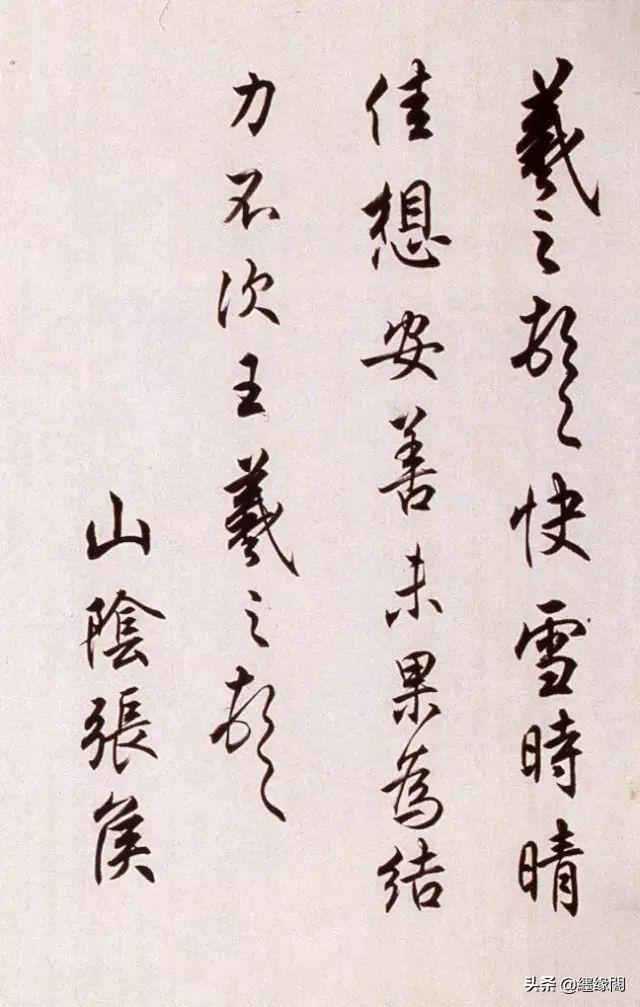 羲之頓首快雪時晴
佳想安善未果為結
力不次王羲之頓首
山陰張侯
头条 @纆缘閣